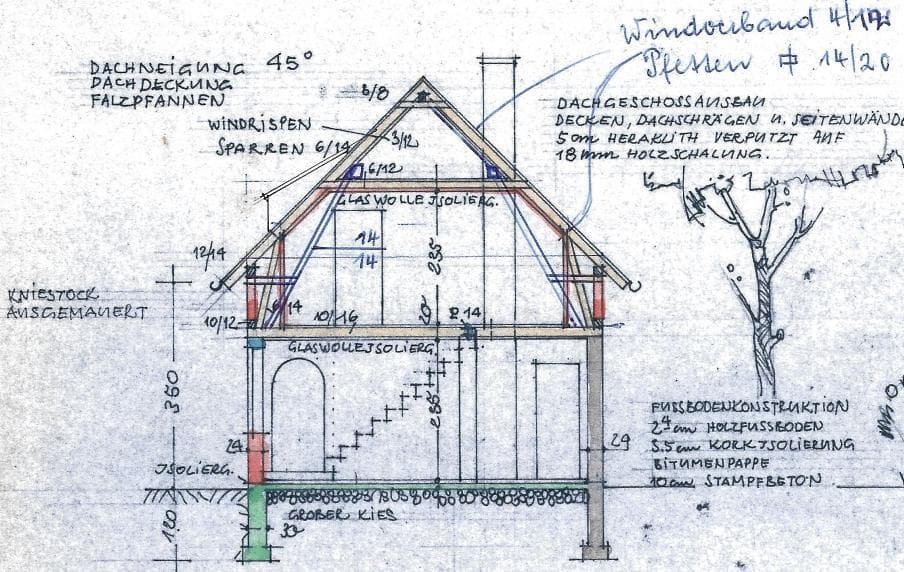 Windverband 4/12
Pfetten 14/20
DACHNEIGUNG 45°
DACHDECKUNG
FALZPFANNEN
3/8
WINDRISPEN 3/12
SPARREN 6/14
6/12
DACHGESCHOSSAUSBAU
DECKEN, DACHSCHRÄGEN U. SEITENWÄNDE
5 cm HERAKLITH VERPUTZT AUF
18 mm HOLZSCHALUNG.
GLASWOLLEJSOLIERG.
14
14
235
12/14
KNIESTOCK
AUSGEMAUERT
10/12
6/14
10/16
20
2.14
GLASWOLLEJSOLIERG.
360
235
24
24
JSOLIERG.
FUSSBODENKONSTRUKTION
2⁴ cm HOLZFUSSBODEN
3.5 cm KORKJSOLIERUNG
BITUMENPAPPE
10 cm STAMPFBETON
GROBER KIES
30